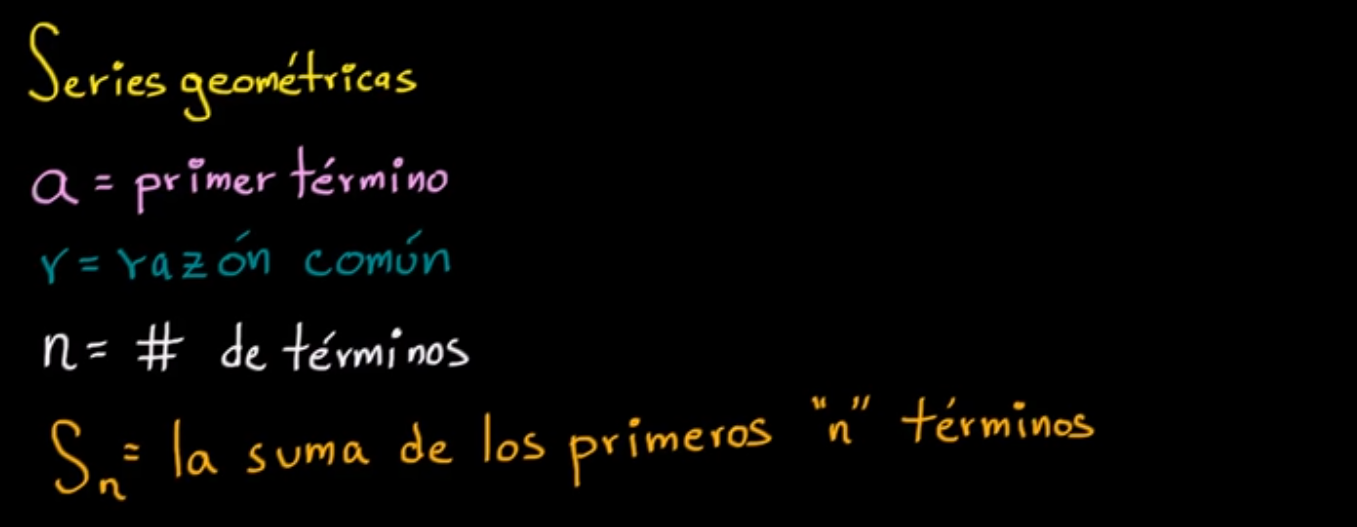 Series geométricas
a = primer término
r = razón común
n = # de términos
Sn = la suma de los primeros "n" términos